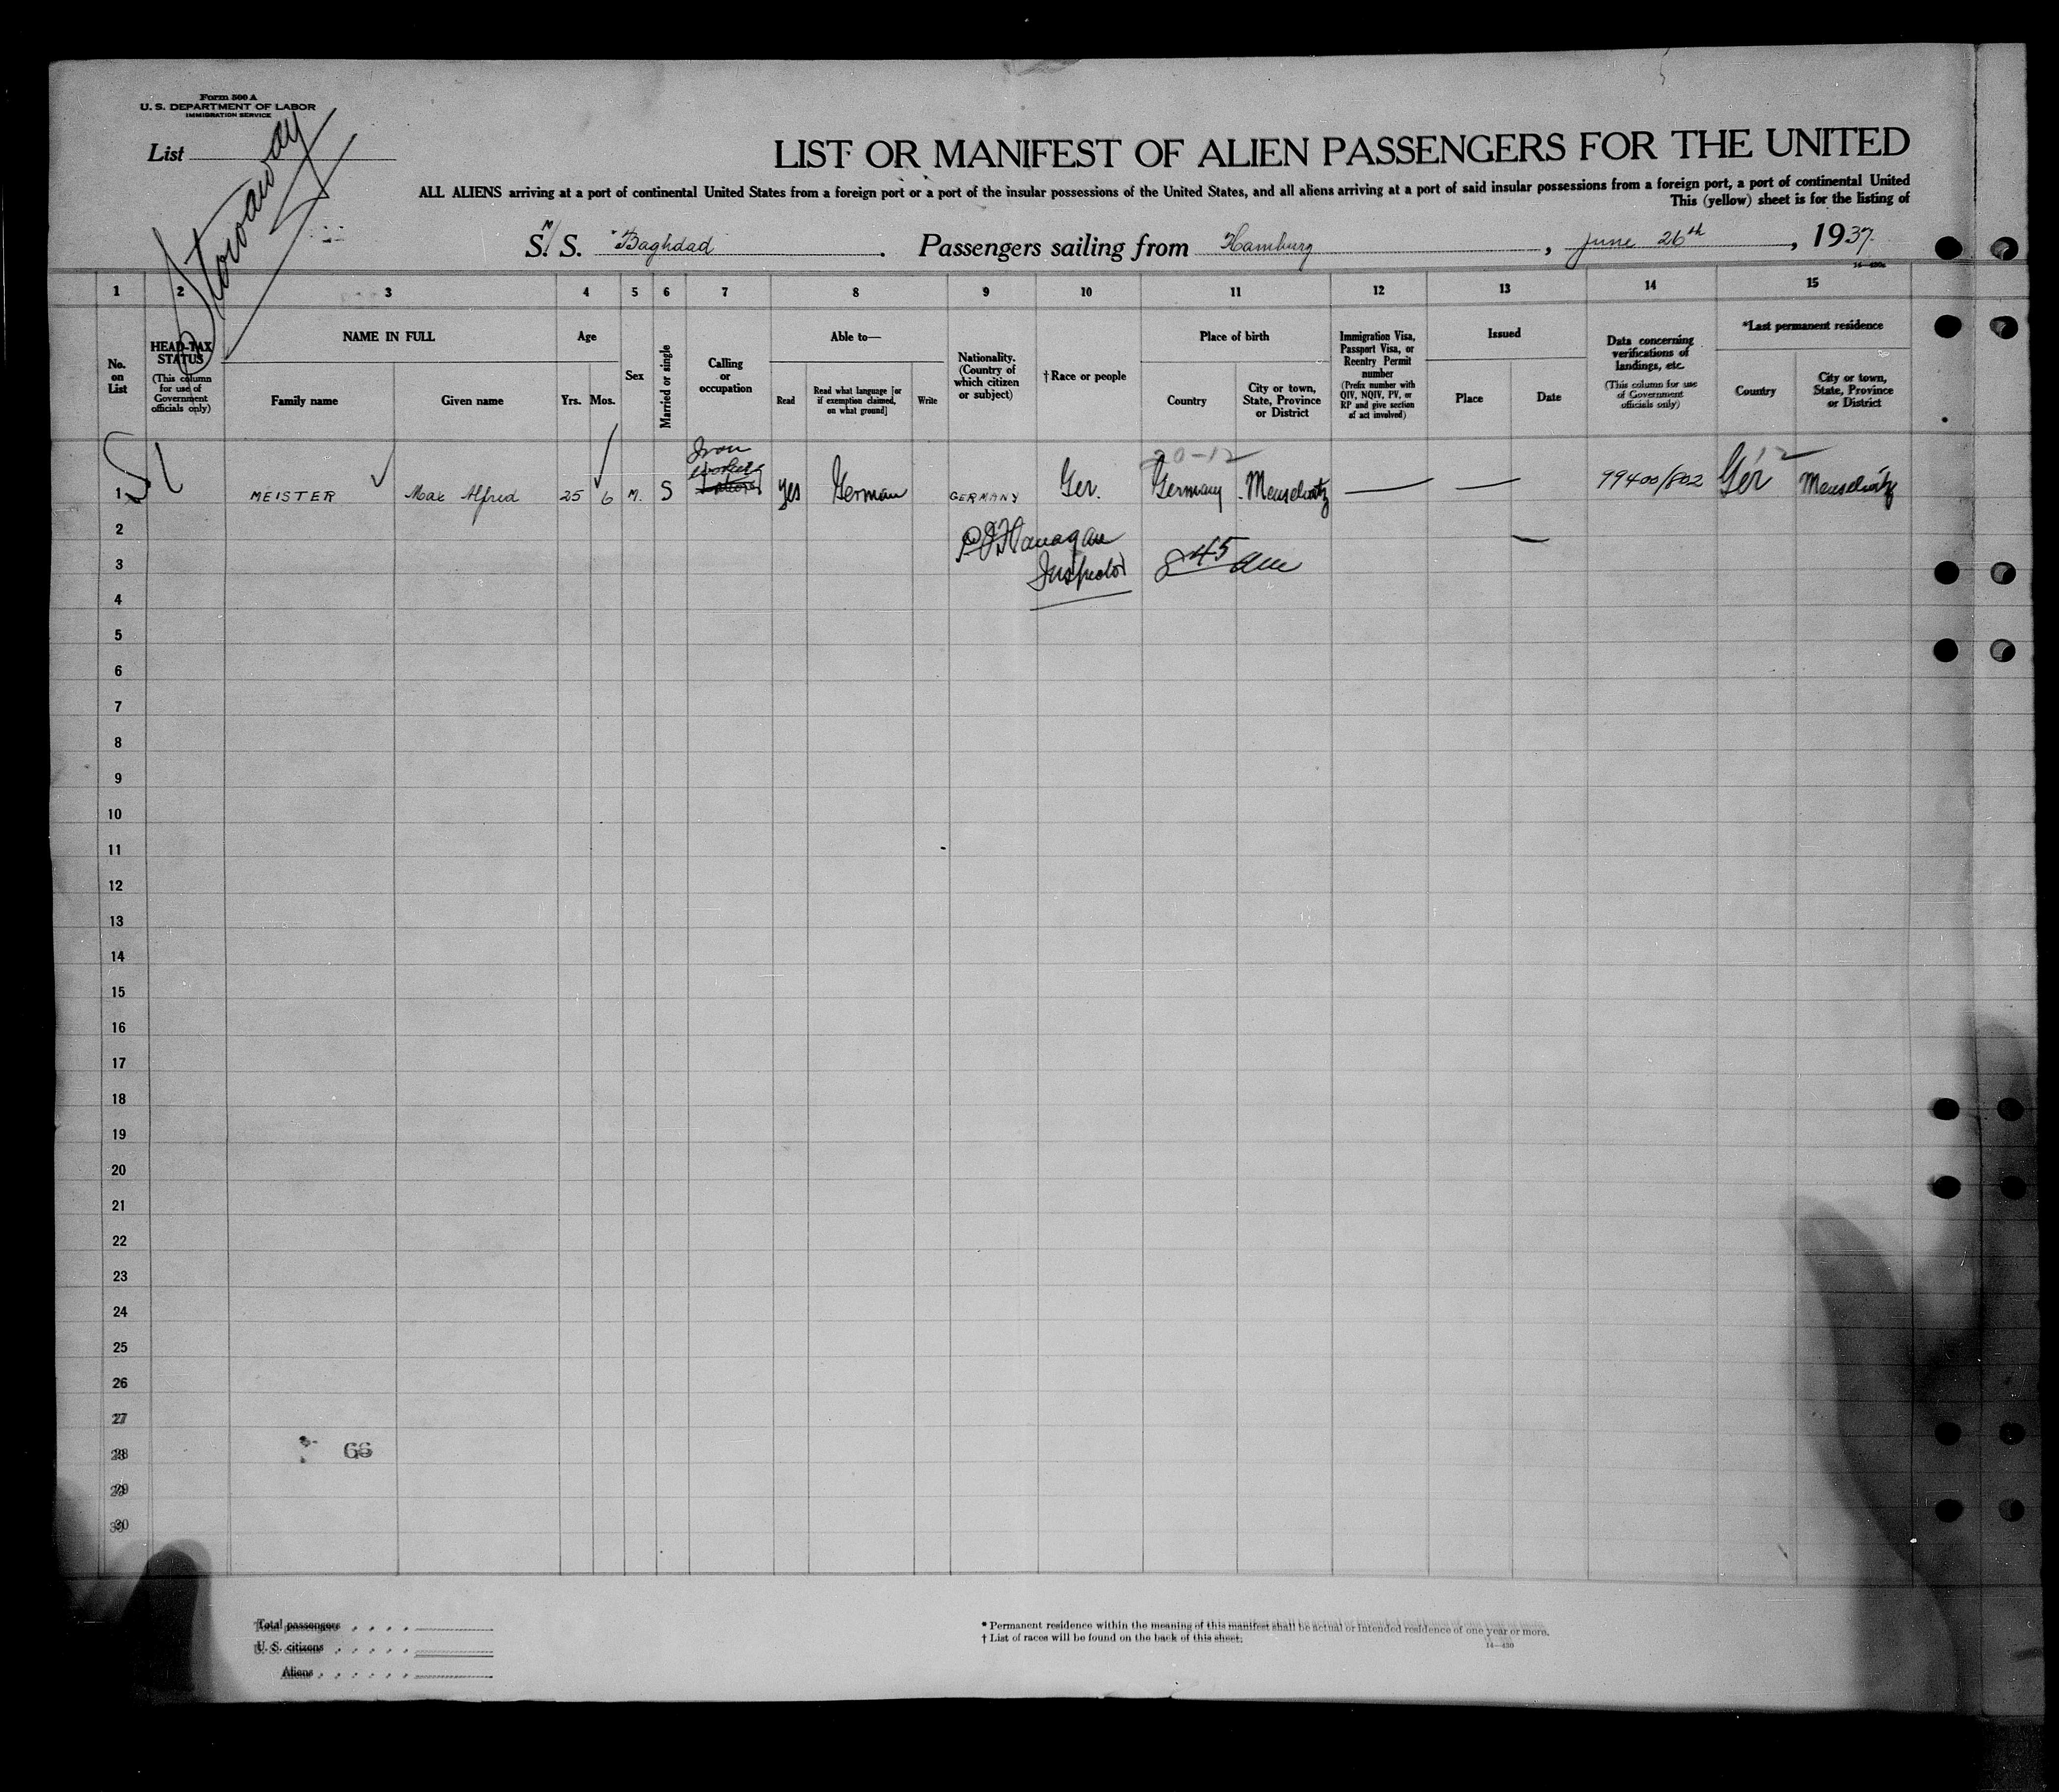 Form 500 A
U. S. DEPARTMENT OF LABOR
IMMIGRATION SERVICE
List
Stowaway
LIST OR MANIFEST OF ALIEN PASSENGERS FOR THE UNITED
ALL ALIENS arriving at a port of continental United States from a foreign port or a port of the insular possessions of the United States, and all aliens arriving at a port of said insular possessions from a foreign port, a port of continental United
This (yellow) sheet is for the listing of
S. S. "Baghdad . Passengers sailing from Hamburg , June 26th , 1937
1 2 3 4 5 6 7 8 9 10 11 12 13 14 15
No. on List
HEAD-TAX STATUS
(This column for use of Government officials only)
NAME IN FULL
Family name
Given name
Age
Yrs.
Mos.
Sex
Married or single
Calling or occupation
Able to—
Read
Read what language [or if exemption claimed, on what ground]
Write
Nationality. (Country of which citizen or subject)
† Race or people
Place of birth
Country
City or town, State, Province or District
Immigration Visa, Passport Visa, or Reentry Permit number
(Prefix number with QIV, NQIV, PV, or RP and give section of act involved)
Issued
Place
Date
Data concerning verifications of landings, etc.
(This column for use of Government officials only)
*Last permanent residence
Country
City or town, State, Province or District
20-12
1 MEISTER Max Alfred 25 6 M. S Iron worker yes German GERMANY Ger. Germany Meuselwitz — — 99400/802 Ger Meuselwitz
2
P J Flanagan
3
Inspector 8 45 am
4
5
6
7
8
9
10
11
12
13
14
15
16
17
18
19
20
21
22
23
24
25
26
27
28
66
29
30
Total passengers
U. S. citizens
Aliens
* Permanent residence within the meaning of this manifest shall be actual or intended residence of one year or more.
† List of races will be found on the back of this sheet.
14—430